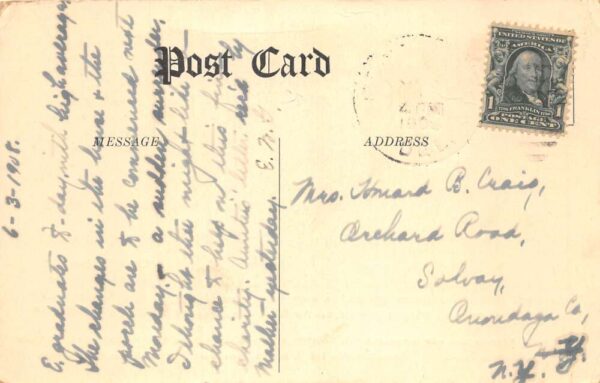 Post Card
MESSAGE
ADDRESS
UNITED STATES OF
AMERICA
1
FRANKLIN
POSTAGE
ONE CENT
6-3-1908.
E. graduates to-day with high average.
The changes in the house & the
porch are to be commenced next
Monday, - a sudden surrender.
I thought they might like a
chance to help on this
charity. Auntie's letter rec'd by
mother yesterday. E.
Mrs. Howard B. Craig,
Orchard Road,
Solvay,
Onondaga Co,
N.Y.